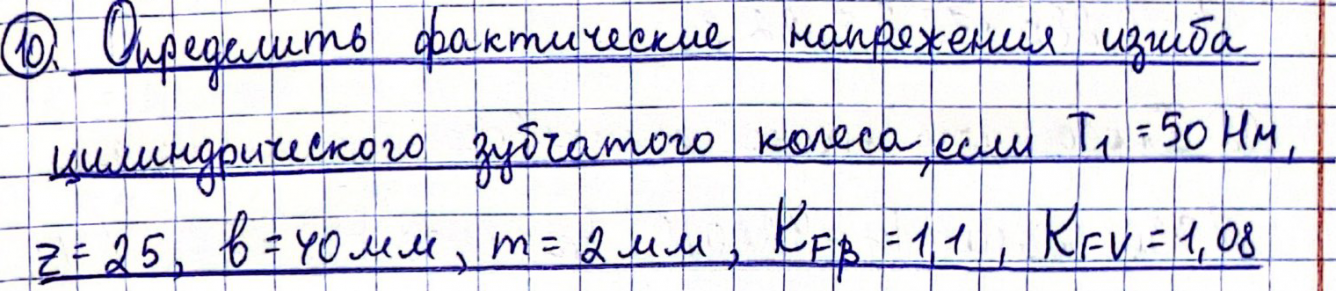 10. Определить фактические напряжения изгиба
цилиндрического зубчатого колеса, если T₁ = 50 Нм,
z = 25, b = 40 мм, m = 2 мм, K_Fβ = 1,1, K_FV = 1,08